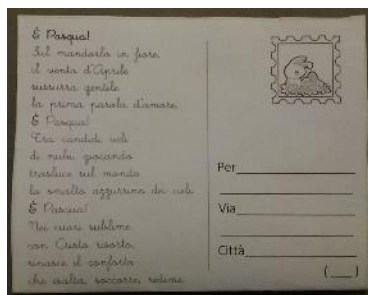 È Pasqua!
Sul mandorlo in fiore
il vento d'Aprile
sussurra gentile
la prima parola d'amore.
È Pasqua!
Tra candidi veli
di nubi giocando
trasluce sul mondo
lo smalto azzurrino dei cieli.
È Pasqua!
Nei cuori sublime
con Cristo risorto,
rinasce il conforto
che esalta, soccorre, redime.
Per
Via
Città
( )